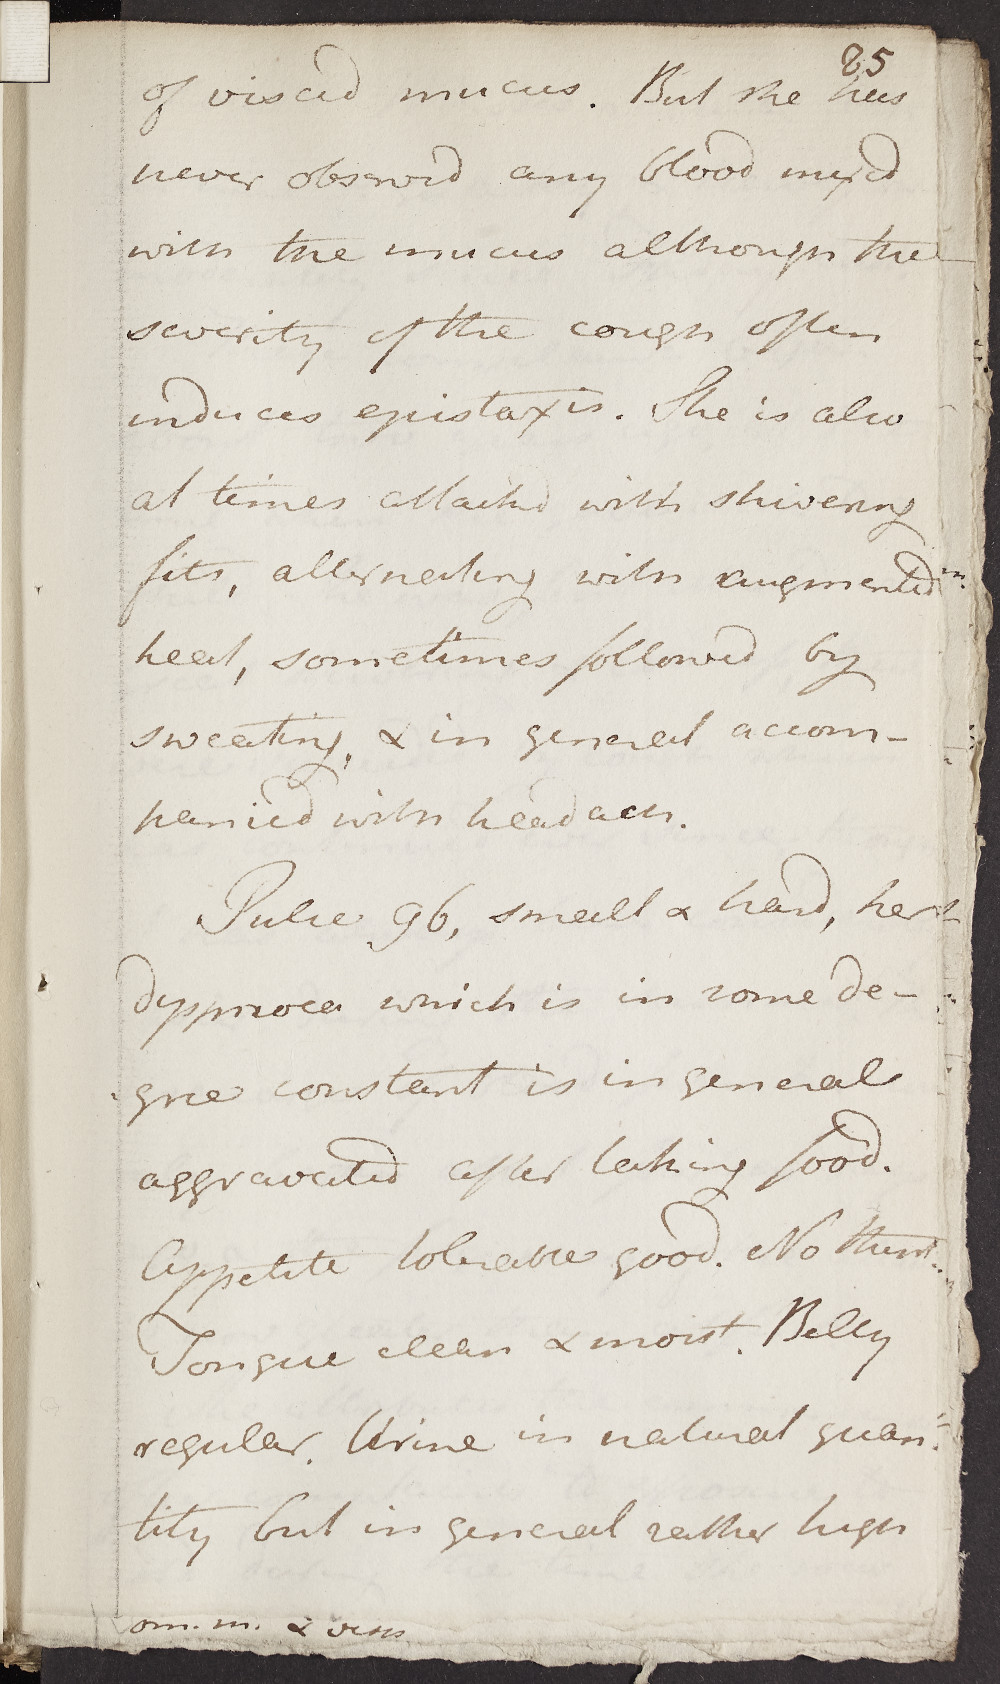 85
of viscid mucus. But she has
never observed any blood mixed
with the mucus although the
severity of the cough often
induces epistaxis. She is also
at times attacked with shivering
fits, alternating with augmented
heat, sometimes followed by
sweating, & in general accom-
panied with headach.
Pulse 96, small & hard, her
dyspnoea which is in some de-
gree constant is in general
aggravated after taking food.
Appetite tolerable good. No thirst.
Tongue clean & moist. Belly
regular. Urine in natural quan-
tity but in general rather high
om. m. &